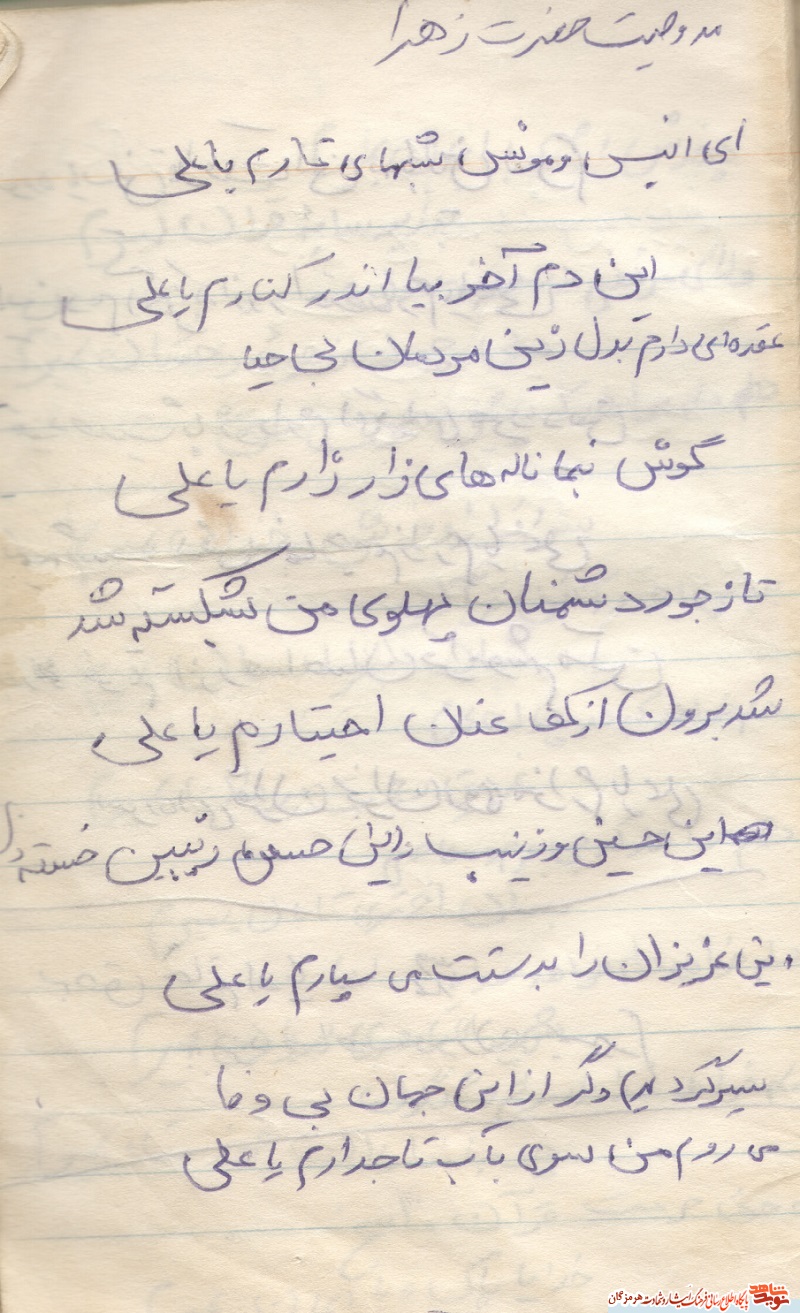 وصیت حضرت زهرا
ای انیس و مونس شبهای تارم یا علی
این دم آخر بیا اندر کنارم یا علی
عقده‌ای دارم بدل زین مردمان بی حیا
گوش نما ناله های زار زارم یا علی
تا ز جور دشمنان پهلوی من بشکسته شد
شد برون از کف عنان اختیارم یا علی
این حسین و زینب و این حسن بین خسته
این عزیزان را بدستت می سپارم یا علی
سیر گردیدم دگر از این جهان بی وفا
می روم من سوی باب تاجدارم یا علی
نوید شاهد
پایگاه اطلاع رسانی فرهنگ ایثار و شهادت هرمزگان